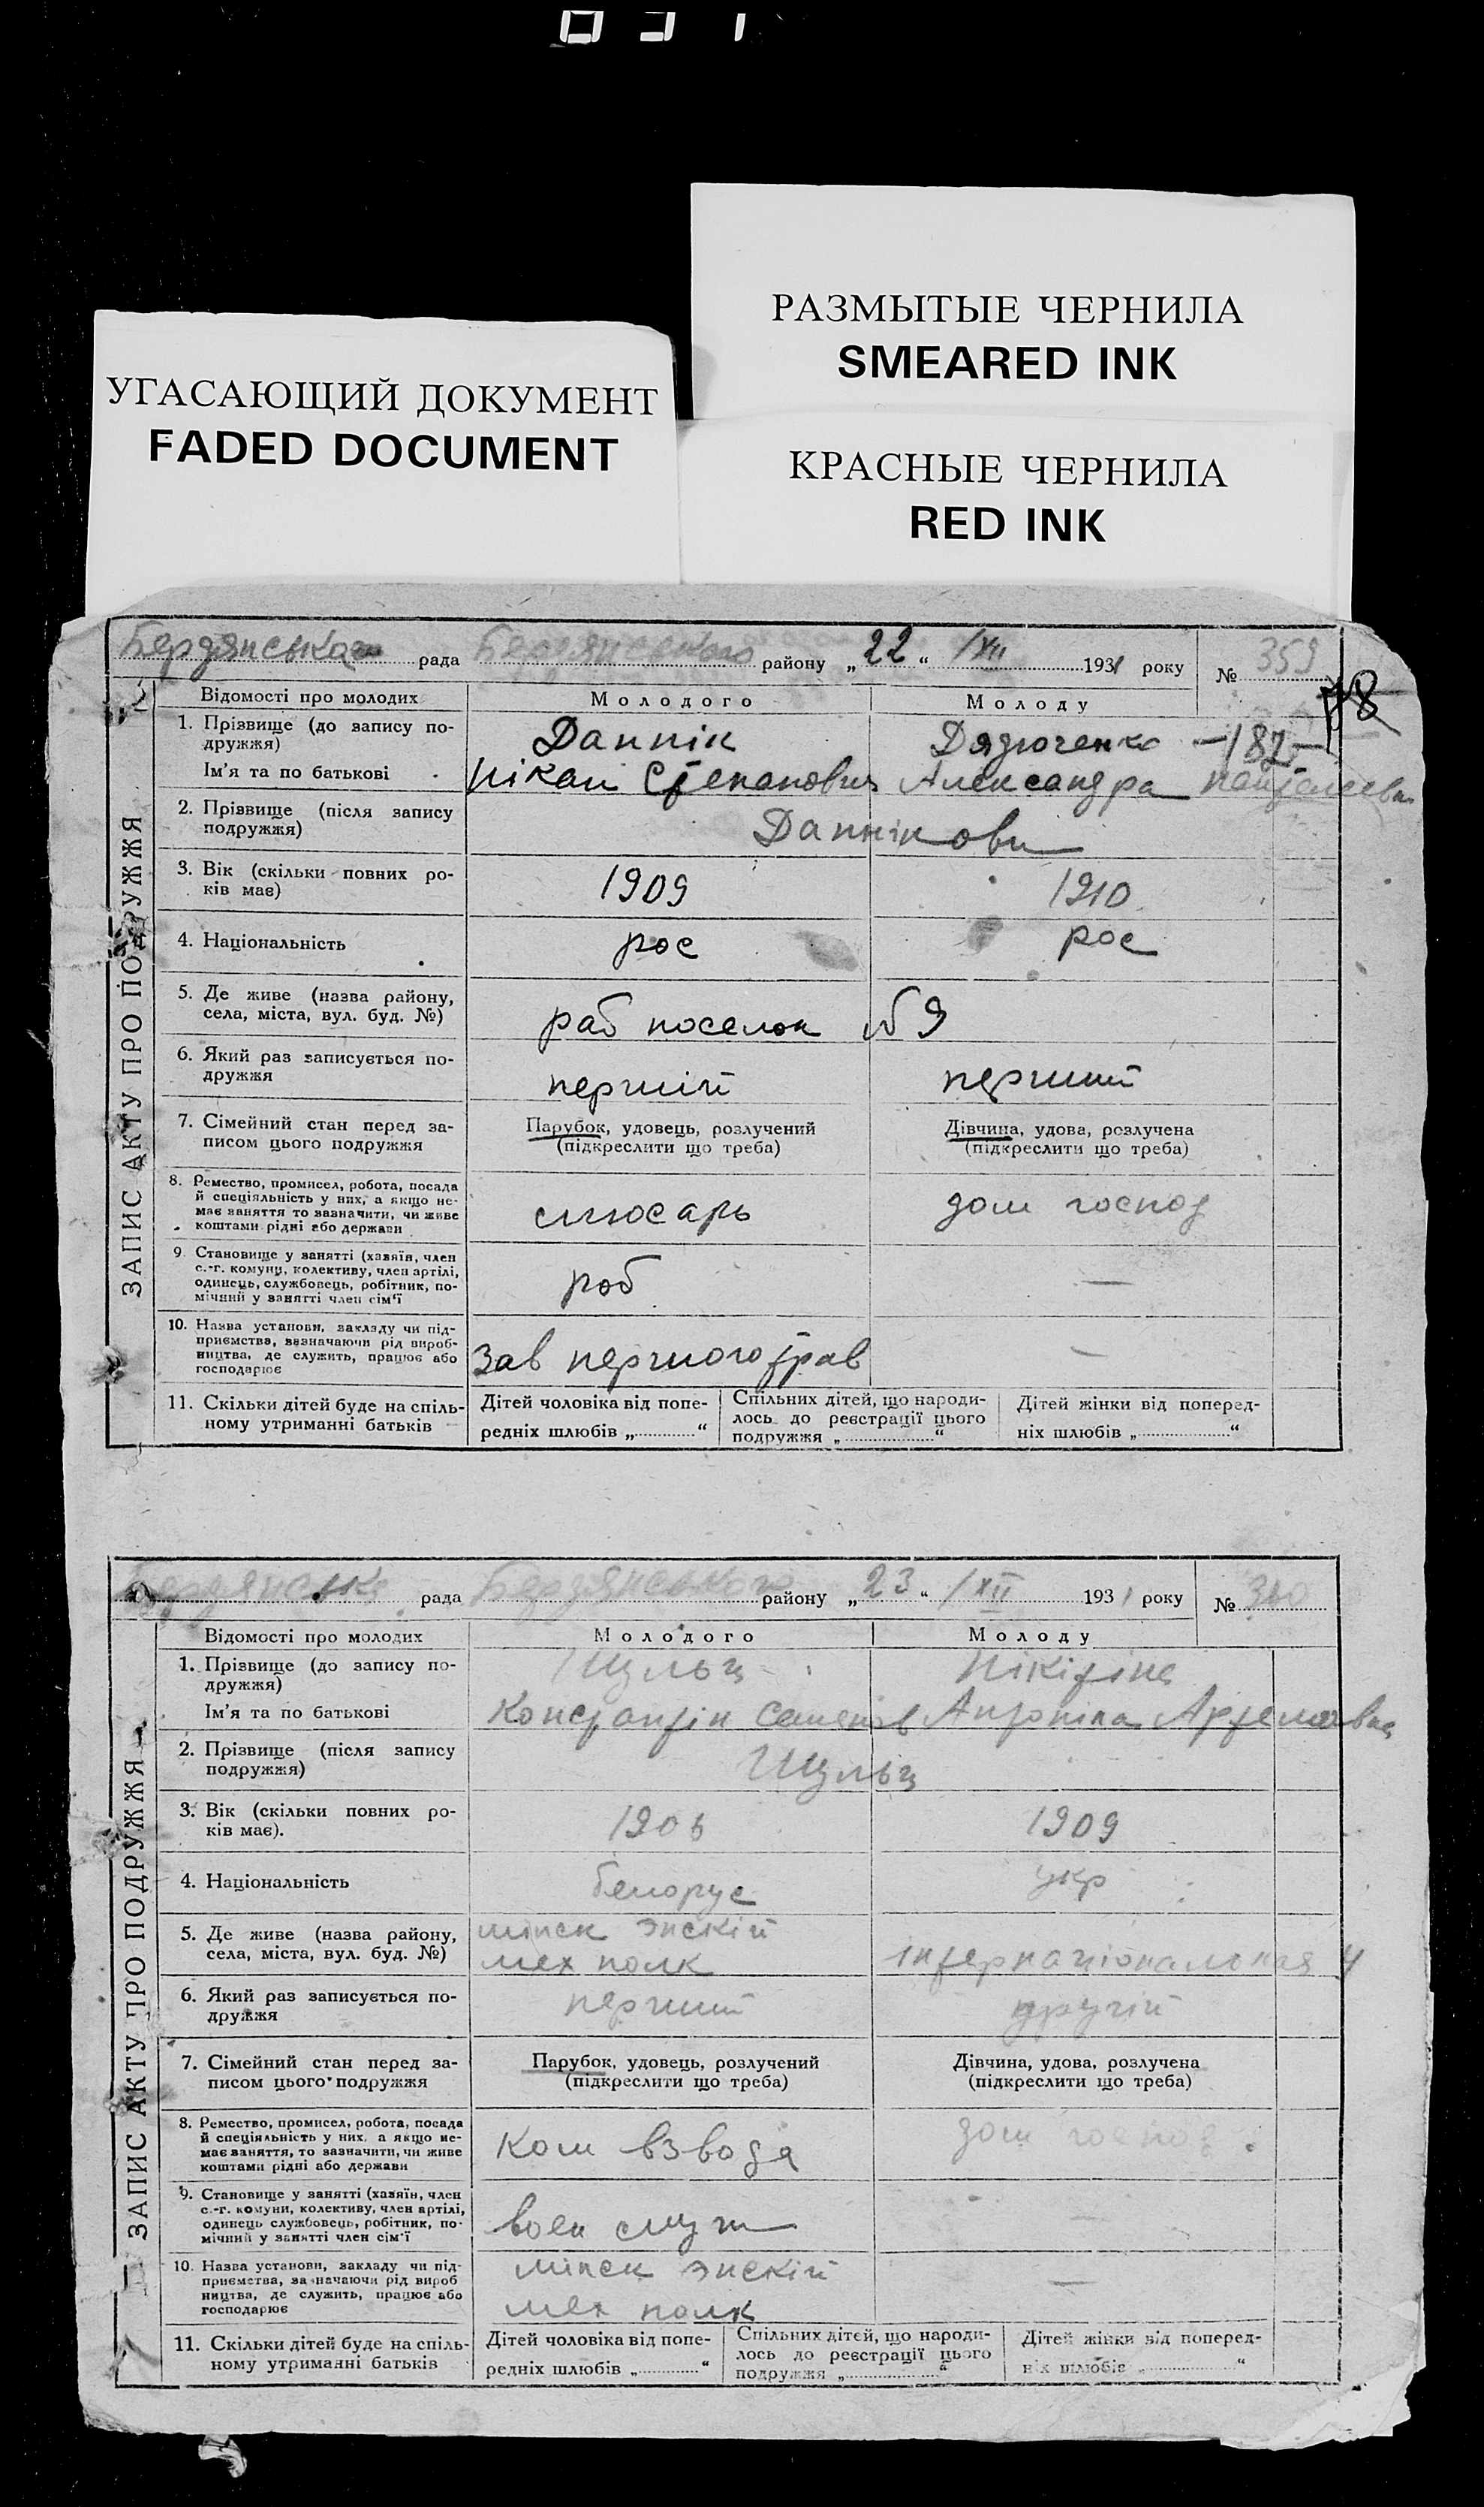 РАЗМЫТЫЕ ЧЕРНИЛА
SMEARED INK
УГАСАЮЩИЙ ДОКУМЕНТ
FADED DOCUMENT
КРАСНЫЕ ЧЕРНИЛА
RED INK
Бердянська рада Бердянського району „22“ /XII 1931 року № 359
78
Відомості про молодих Молодого Молоду
ЗАПИС АКТУ ПРО ПОДРУЖЖЯ
1. Прізвище (до запису по-
дружжя)
Даннік Дядюченко —187—
Ім'я та по батькові
Нікан Степанович Александра
2. Прізвище (після запису
подружжя)
Даннікови
3. Вік (скільки повних ро-
ків має)
1909 1910
4. Національність
рос рос
5. Де живе (назва району,
села, міста, вул. буд. №)
раб поселок №9
6. Який раз записується по-
дружжя
перший перший
7. Сімейний стан перед за-
писом цього подружжя
Парубок, удовець, розлучений
(підкреслити що треба)
Дівчина, удова, розлучена
(підкреслити що треба)
8. Ремество, промисел, робота, посада
й спеціяльність у них, а якщо не-
має заняття то зазначити, чи живе
коштами рідні або держави
слюсарь дом господ
9. Становище у занятті (хазяїн, член
с.-г. комуни, колективу, член артілі,
одинець, службовець, робітник, по-
мічний у занятті член сім'ї
роб —
10. Назва установи, закладу чи під-
приємства, зазначаючи рід вироб-
ництва, де служить, працює або
господарює
Зав першого трав —
11. Скільки дітей буде на спіль-
ному утриманні батьків
Дітей чоловіка від попе-
редніх шлюбів „ “
Спільних дітей, що народи-
лось до реєстрації цього
подружжя „ “
Дітей жінки від поперед-
ніх шлюбів „ “
Бердянська рада Бердянського району „23“ /XII 1931 року № 360
Відомості про молодих Молодого Молоду
ЗАПИС АКТУ ПРО ПОДРУЖЖЯ
1. Прізвище (до запису по-
дружжя)
Шульц Нікітіна
Ім'я та по батькові
Константін Семенов Антоніна Артемовна
2. Прізвище (після запису
подружжя)
Шульц
3. Вік (скільки повних ро-
ків має).
1906 1909
4. Національність
белорус укр
5. Де живе (назва району,
села, міста, вул. буд. №)
мінск
мех полк інтернаціональная 4
6. Який раз записується по-
дружжя
перший другій
7. Сімейний стан перед за-
писом цього подружжя
Парубок, удовець, розлучений
(підкреслити що треба)
Дівчина, удова, розлучена
(підкреслити що треба)
8. Ремество, промисел, робота, посада
й спеціяльність у них, а якщо не-
має заняття, то зазначити, чи живе
коштами рідні або держави
Ком взвода дом господ
9. Становище у занятті (хазяїн, член
с.-г. комуни, колективу, член артілі,
одинець службовець, робітник, по-
мічний у занятті член сім'ї
воен служ —
10. Назва установи, закладу чи під-
приємства, зазначаючи рід вироб
ництва, де служить, працює або
господарює
мінск
мех полк —
11. Скільки дітей буде на спіль-
ному утриманні батьків
Дітей чоловіка від попе-
редніх шлюбів „ “
Спільних дітей, що народи-
лось до реєстрації цього
подружжя „ “
Дітей жінки від поперед-
ніх шлюбів „ “